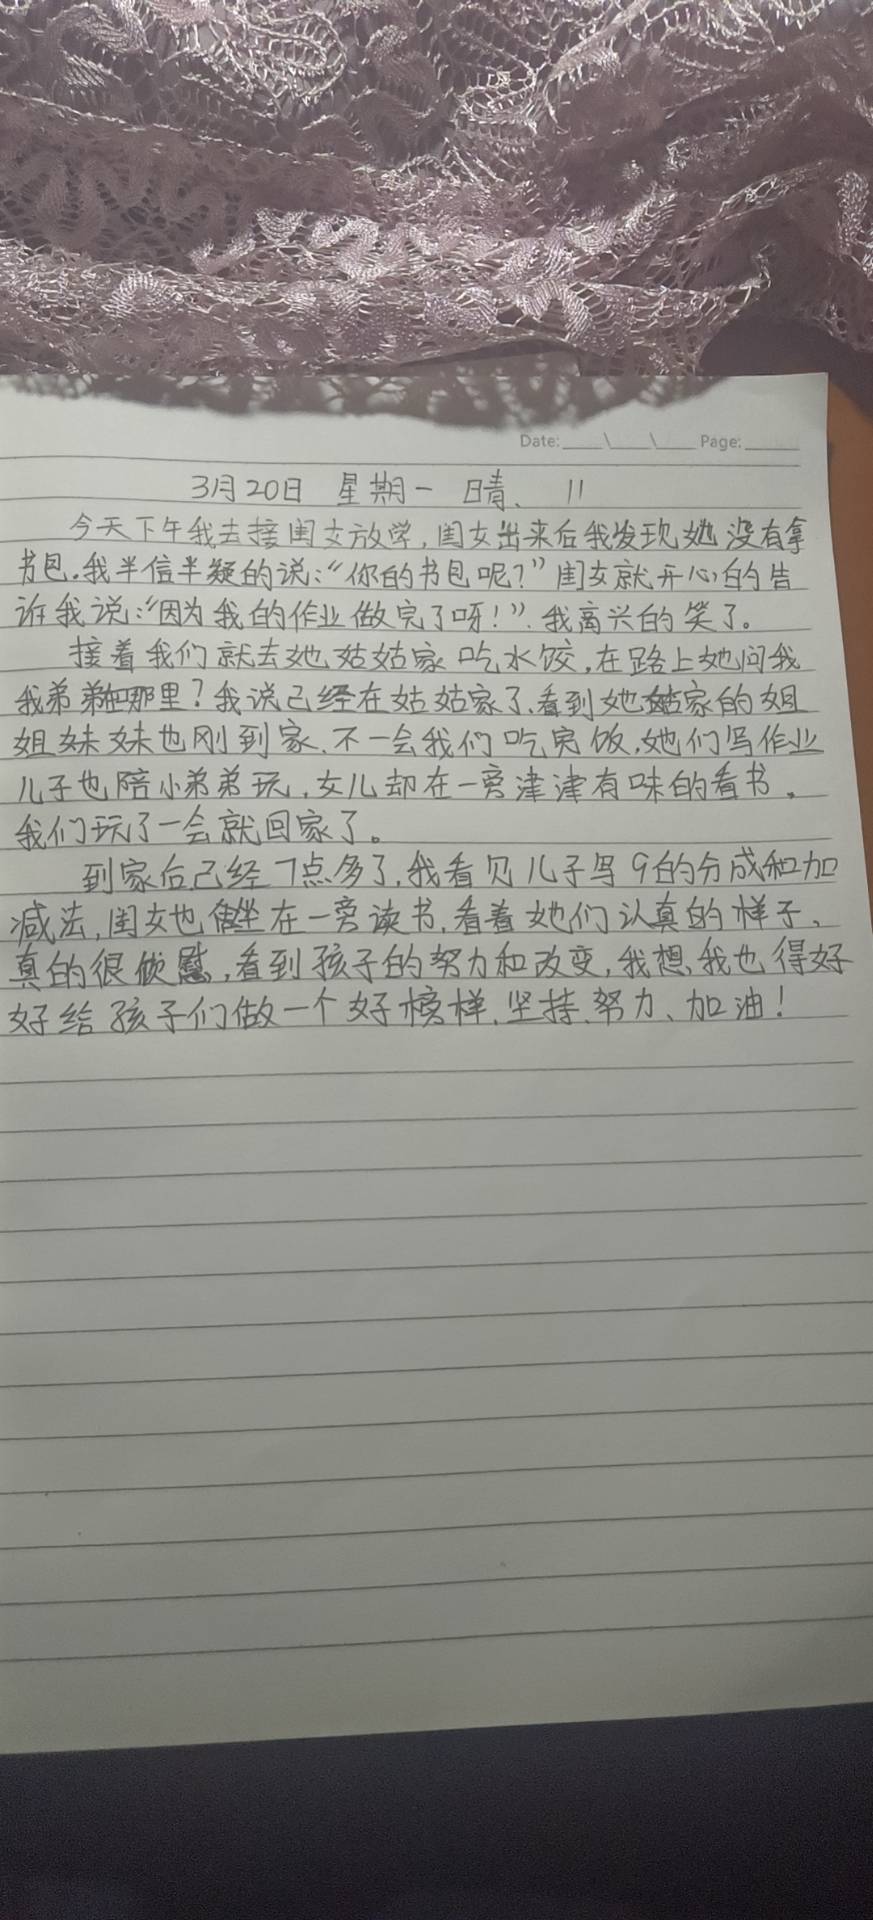 Date: \ \ Page:
3月20日 星期一 晴、 11
今天下午我去接闺女放学,闺女出来后我发现她没有拿
书包.我半信半疑的说:“你的书包呢?”闺女就开心的告
诉我说:“因为我的作业做完了呀!”.我高兴的笑了。
接着我们就去她姑姑家吃水饺,在路上她问我
我弟弟在那里?我说已经在姑姑家了、看到她姑家的姐
姐妹妹也刚到家、不一会我们吃完饭,她们写作业
儿子也陪小弟弟玩,女儿却在一旁津津有味的看书。
我们玩了一会就回家了。
到家后已经7点多了,我看见儿子写9的分成和加
减法,闺女也坐在一旁读书,看着她们认真的样子、
真的很欣慰,看到孩子的努力和改变,我想,我也得好
好给孩子们做一个好榜样、坚持、努力、加油!